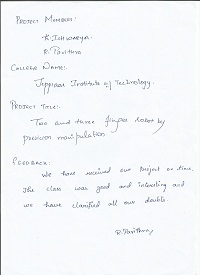 PROJECT MEMBERS:
K. ISHWARYA
R. Pavithra
COLLEGE NAME:
Jeppiaar Institute of Technology.
PROJECT TITLE:
Two and three finger robot by
precision manipulation
FEEDBACK:
We have received our project on time.
The class was good and interesting and
we have clarified all our doubts.
R. Pavithra